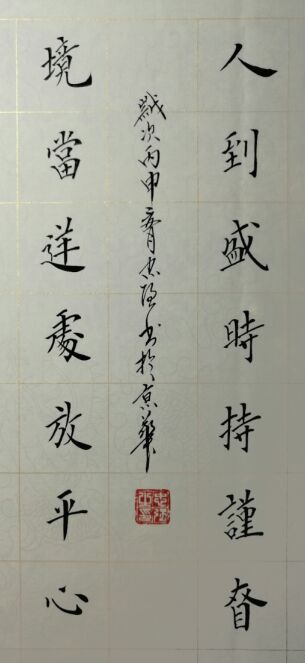 人到盛時持謹眘
境當逆處放平心
歲次丙申月忠书於京華